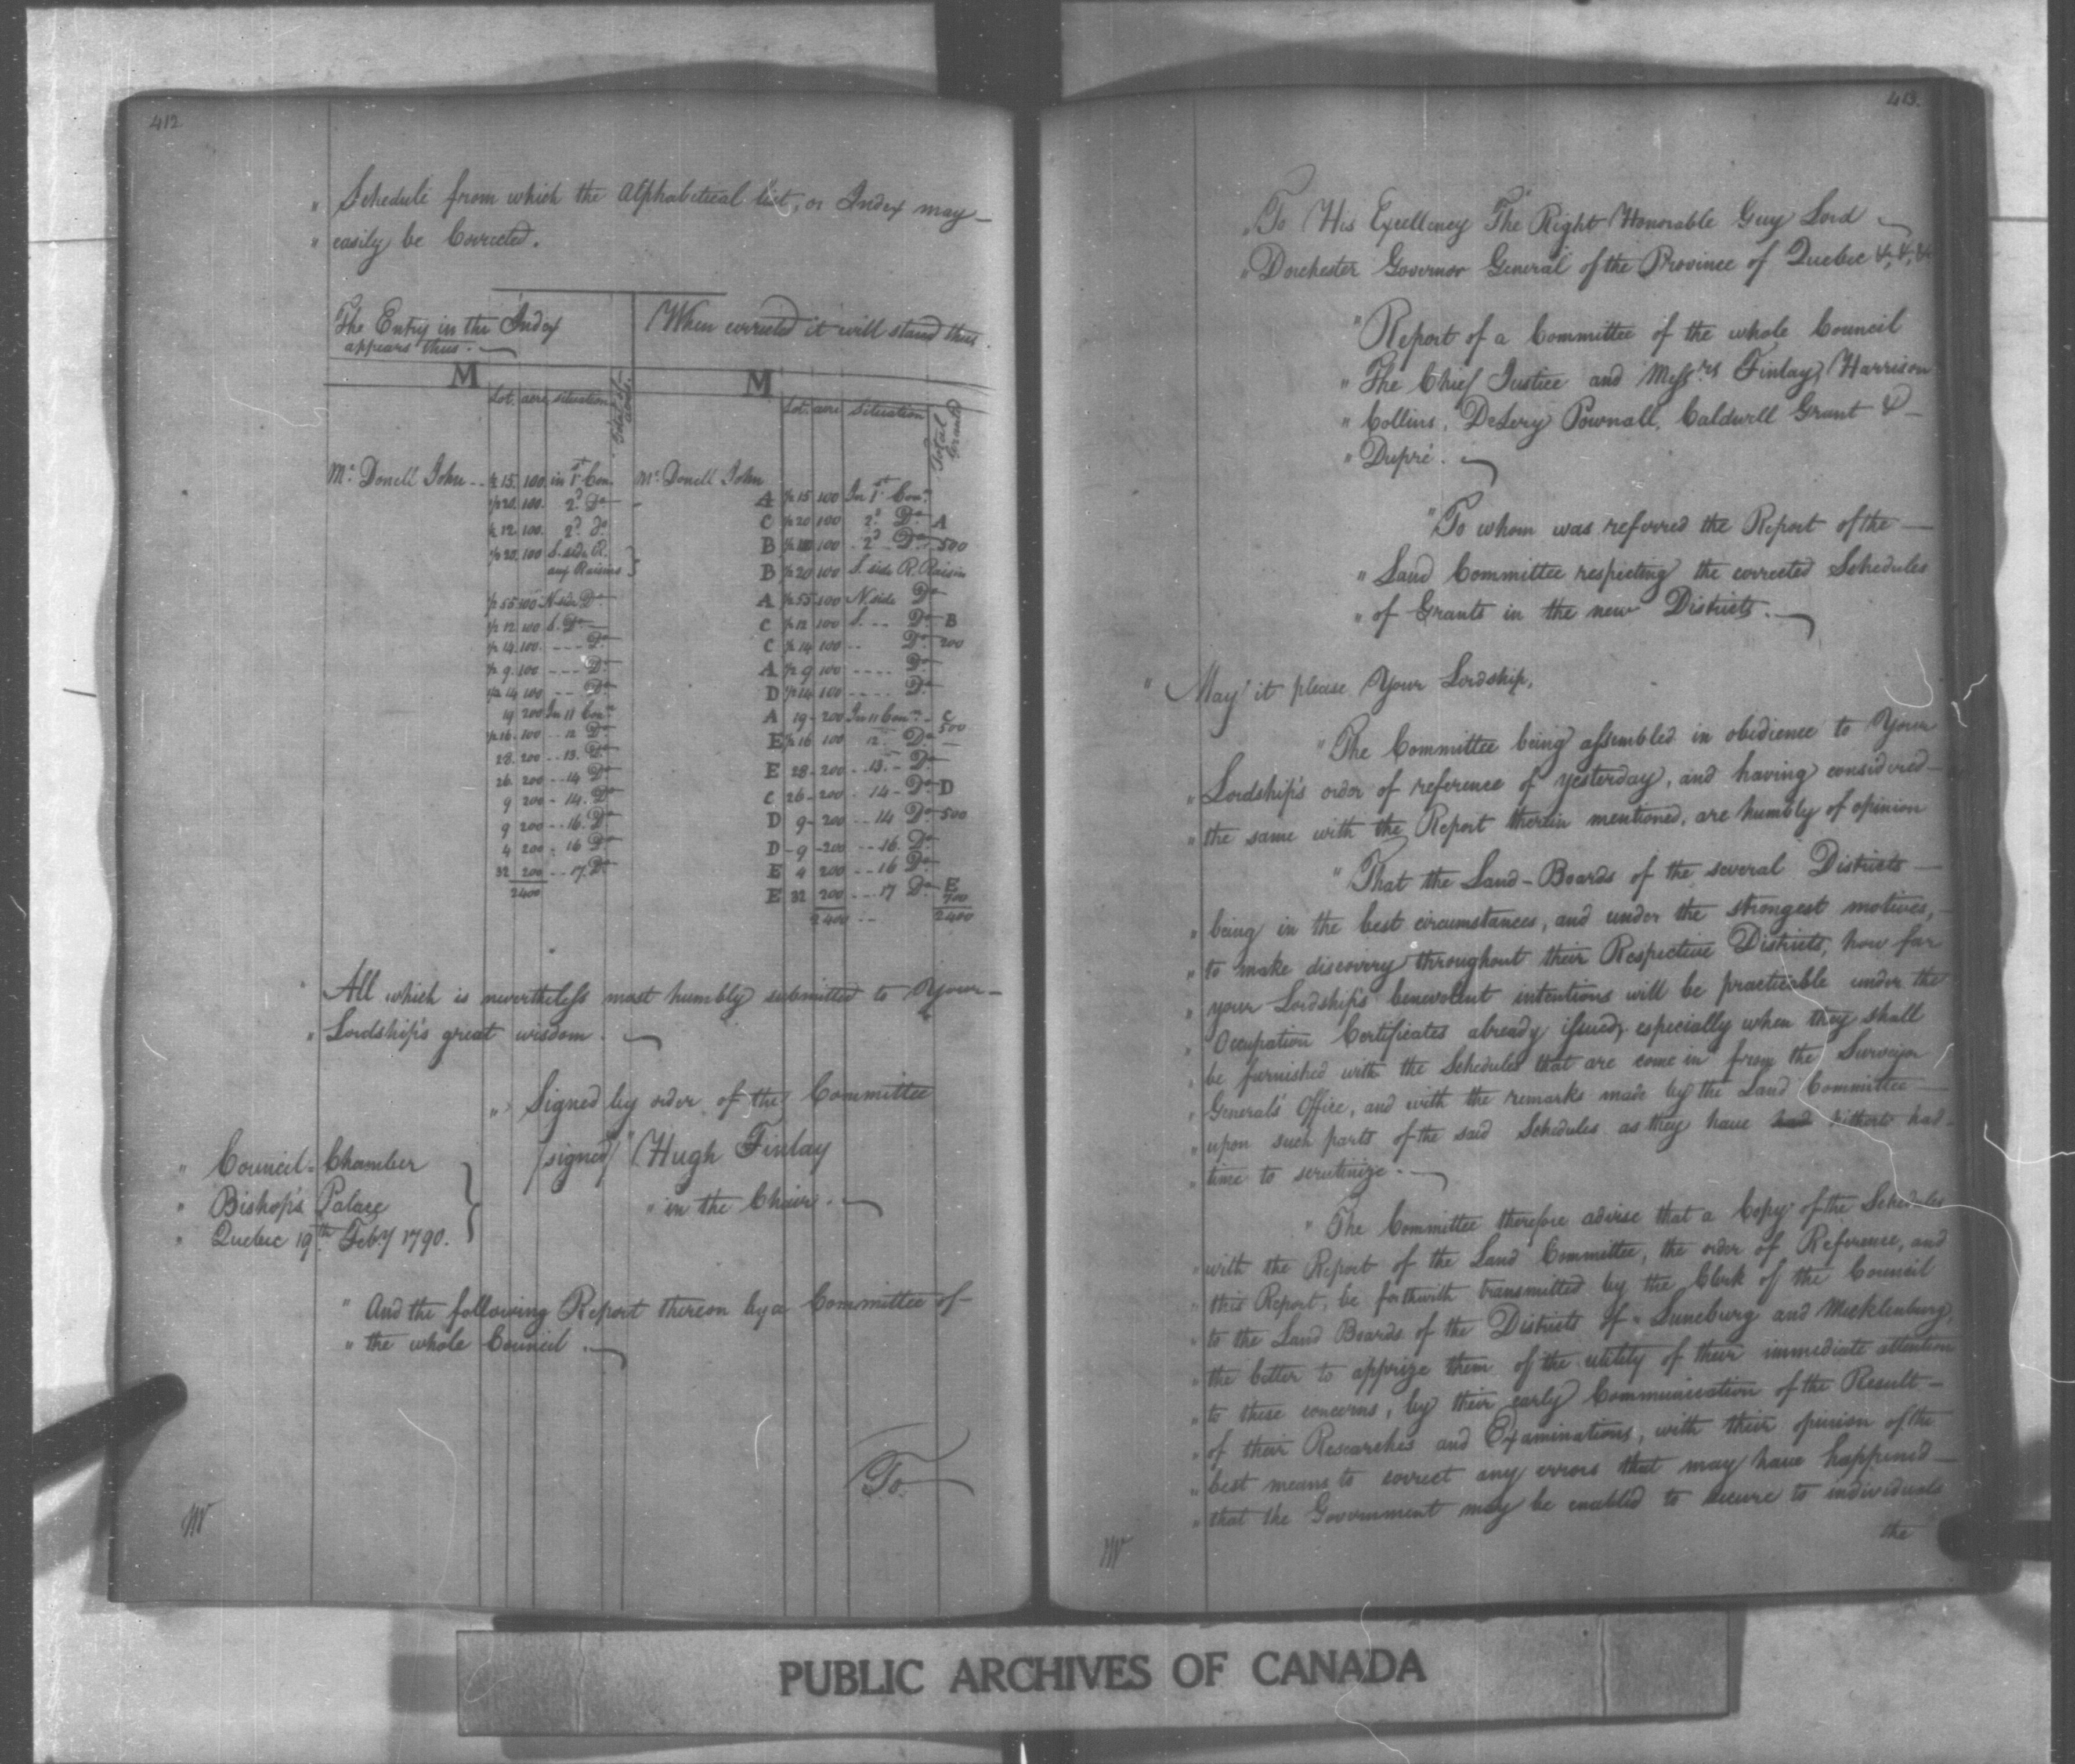 412
" Schedule from which the alphabetical list, or Index may
" easily be Corrected.
The Entry in the Index
appears thus.
When corrected it will stand thus.
M
Lot. acre situation Total
Mc. Donell John ½ 15. 100. in 1st Con.
½ 20. 100. 2d. Do
½ 12. 100. 2d. Do
½ 20. 100 S. side R.
aux Raisins
½ 55 100 N. side Do
½ 12 100 S. Do
½ 14. 100. Do
½ 9. 100 Do
½ 14 100 Do
19 200 In 11 Con.
½ 16. 100 12 Do
28. 200 13. Do
26. 200 14 Do
9 200 14. Do
9 200 16. Do
4 200 16 Do
32 200 17. Do
2400
M
Lot. acre situation Total
Mc. Donell John
A ½ 15 100 In 1st Con.
C ½ 20 100 2d. Do A
B 100 2d Do 500
B ½ 20 100 S. side R. Raisin
A ½ 55 100 N. side Do
C ½ 12 100 S. Do B
C ½ 14 100 Do 200
A ½ 9 100 Do
D ½ 14 100 Do
A 19 200 In 11 Con. C
500
E ½ 16 100 12. Do
E 28 200 13. Do
C 26 200 14 Do D
D 9 200 14 Do 500
D 9 200 16. Do
E 4 200 16 Do
E 32 200 17 Do E
700
2400 2400
All which is nevertheless most humbly submitted to Your
" Lordship's great wisdom.
" Signed by order of the Committee
(signed) Hugh Finlay
" in the Chair.
" Council-Chamber
" Bishop's Palace
" Quebec 19th. Feby 1790.
" And the following Report thereon by a Committee of
" the whole Council.
To
413.
" To His Excellency The Right Honorable Guy Lord
" Dorchester Governor General of the Province of Quebec &, &, &
" Report of a Committee of the whole Council
" The Chief Justice and Messrs Finlay, Harrison
" Collins, DeLery Pownall, Caldwell Grant &
" Dupré.
" To whom was referred the Report of the
" Land Committee respecting the corrected Schedules
" of Grants in the new Districts.
" May it please Your Lordship,
" The Committee being assembled in obedience to Your
" Lordship's order of reference of yesterday, and having considered
" the same with the Report therein mentioned, are humbly of opinion
" That the Land-Boards of the several Districts
" being in the best circumstances, and under the strongest motives,
" to make discovery throughout their Respective Districts, how far
" your Lordship's benevolent intentions will be practicable under the
" Occupation Certificates already issued, especially when they shall
" be furnished with the Schedules that are come in from the Surveyor
" Generals' Office, and with the remarks made by the Land Committee
" upon such parts of the said Schedules as they have had hitherto had
" time to scrutinize.
" The Committee therefore advise that a Copy of the Schedules
" with the Report of the Land Committee, the order of Reference, and
" this Report, be forthwith transmitted by the Clerk of the Council
" to the Land Boards of the Districts of Luneburg and Mecklenburg,
" the better to apprize them of the utility of their immediate attention
" to these concerns, by their early Communication of the Result
" of their Researches and Examinations, with their opinion of the
" best means to correct any errors that may have happened
" that the Government may be enabled to secure to individuals
the
PUBLIC ARCHIVES OF CANADA